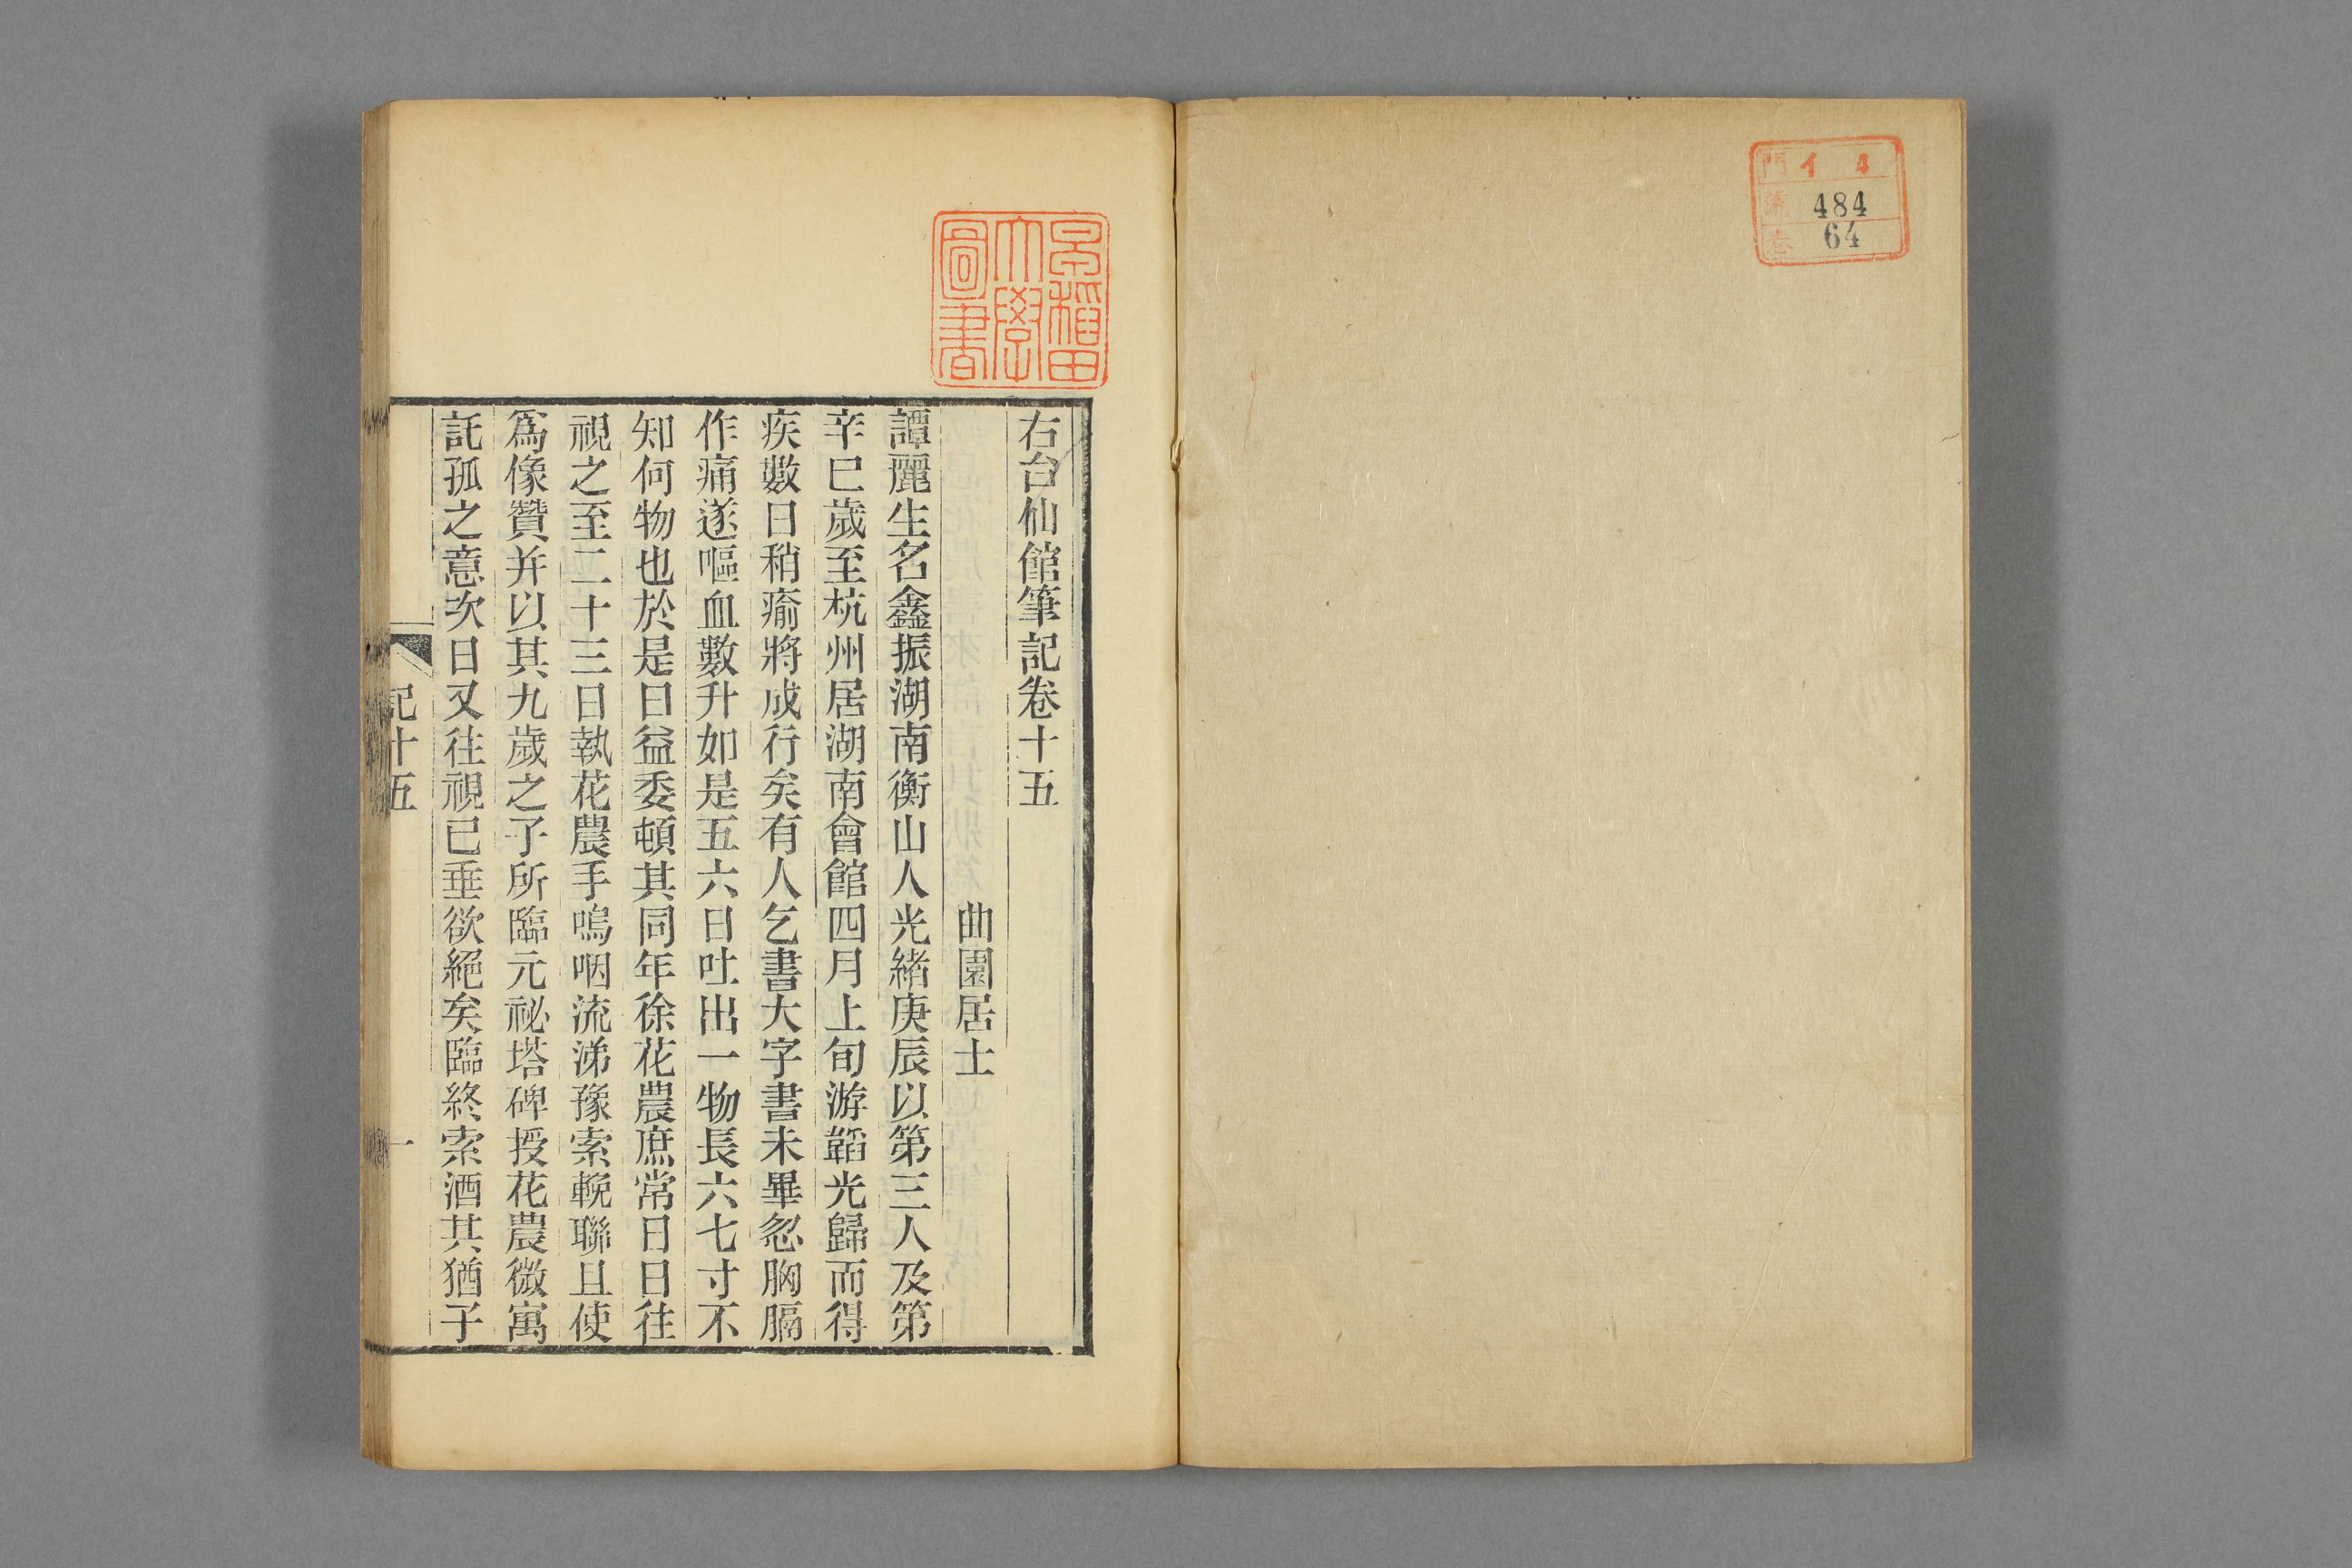 門 イ 4
號 484
卷 64
早稲田
大學
圖書
右台仙館筆記卷十五
曲園居士
譚麗生名鑫振湖南衡山人光緒庚辰以第三人及第
辛巳歲至杭州居湖南會館四月上旬游韜光歸而得
疾數日稍瘉將成行矣有人乞書大字書未畢忽胸膈
作痛遂嘔血數升如是五六日吐出一物長六七寸不
知何物也於是日益委頓其同年徐花農庶常日日往
視之至二十三日執花農手嗚咽流涕豫索輓聯且使
爲像贊并以其九歲之子所臨元祕塔碑授花農微寓
託孤之意次日又往視已垂欲絕矣臨終索酒其猶子
記十五
一